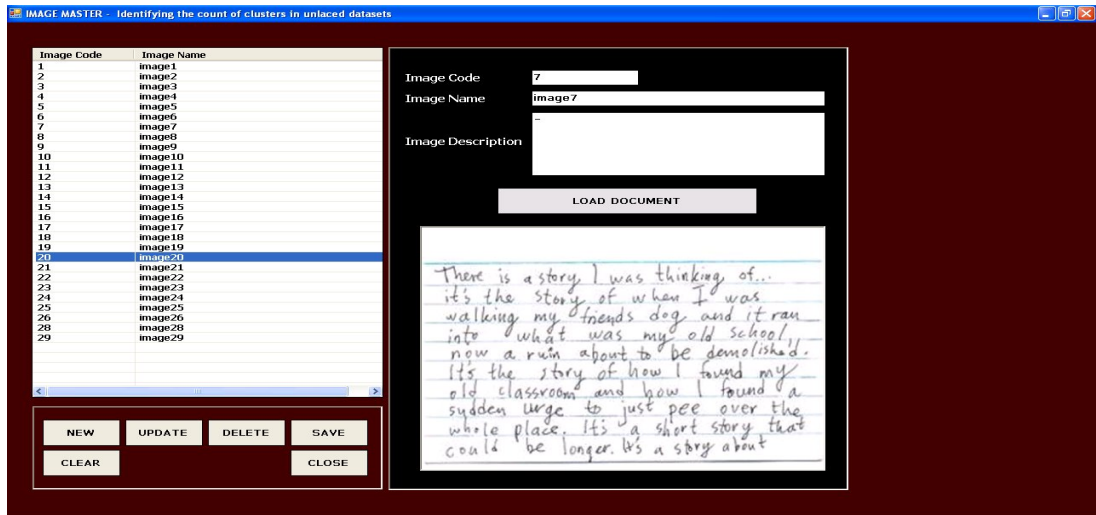 IMAGE MASTER - Identifying the count of clusters in unlaced datasets
Image Code Image Name
1 image1
2 image2
3 image3
4 image4
5 image5
6 image6
7 image7
8 image8
9 image9
10 image10
11 image11
12 image12
13 image13
14 image14
15 image15
16 image16
17 image17
18 image18
19 image19
20 image20
21 image21
22 image22
23 image23
24 image24
25 image25
26 image26
28 image28
29 image29
NEW UPDATE DELETE SAVE
CLEAR CLOSE
Image Code 7
Image Name image7
Image Description –
LOAD DOCUMENT
There is a story I was thinking of...
it's the story of when I was
walking my friends dog and it ran
into what was my old school,
now a ruin about to be demolished.
It's the story of how I found my
old classroom and how I found a
sudden urge to just pee over the
whole place. It's a short story that
could be longer. It's a story about